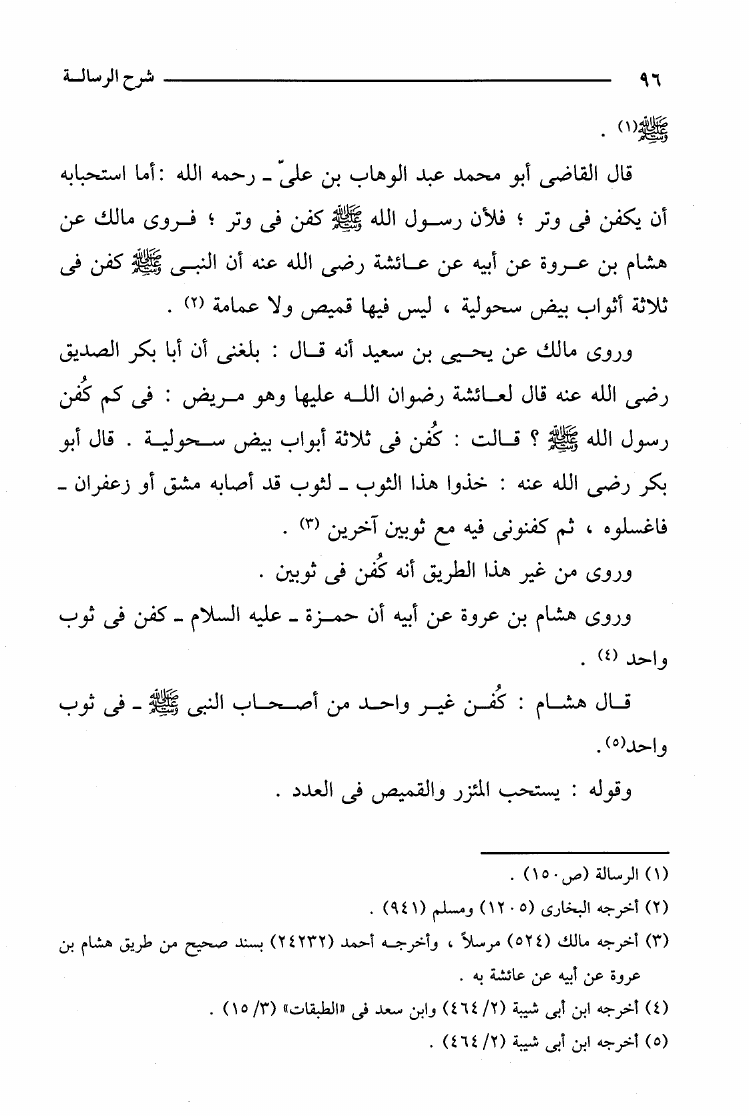 ٩٦ شرح الرسالة
ﷺ(١) .
قال القاضى أبو محمد عبد الوهاب بن علىّ ـ رحمه الله : أما استحبابه
أن يكفن فى وتر ؛ فلأن رسول الله ﷺ كفن فى وتر ؛ فروى مالك عن
هشام بن عروة عن أبيه عن عائشة رضى الله عنه أن النبى ﷺ كفن فى
ثلاثة أثواب بيض سحولية ، ليس فيها قميص ولا عمامة (٢) .
وروى مالك عن يحيى بن سعيد أنه قال : بلغنى أن أبا بكر الصديق
رضى الله عنه قال لعائشة رضوان الله عليها وهو مريض : فى كم كُفن
رسول الله ﷺ ؟ قالت : كُفن فى ثلاثة أبواب بيض سحولية . قال أبو
بكر رضى الله عنه : خذوا هذا الثوب ـ لثوب قد أصابه مشق أو زعفران ـ
فاغسلوه ، ثم كفنونى فيه مع ثوبين آخرين (٣) .
وروى من غير هذا الطريق أنه كُفن فى ثوبين .
وروى هشام بن عروة عن أبيه أن حمزة ـ عليه السلام ـ كفن فى ثوب
واحد (٤) .
قال هشام : كُفن غير واحد من أصحاب النبى ﷺ ـ فى ثوب
واحد(٥).
وقوله : يستحب المئزر والقميص فى العدد .
(١) الرسالة (ص١٥٠) .
(٢) أخرجه البخارى (١٢٠٥) ومسلم (٩٤١) .
(٣) أخرجه مالك (٥٢٤) مرسلاً ، وأخرجه أحمد (٢٤٢٣٢) بسند صحيح من طريق هشام بن
عروة عن أبيه عن عائشة به .
(٤) أخرجه ابن أبى شيبة (٢/ ٤٦٤) وابن سعد فى «الطبقات» (٣/ ١٥) .
(٥) أخرجه ابن أبى شيبة (٢/ ٤٦٤) .